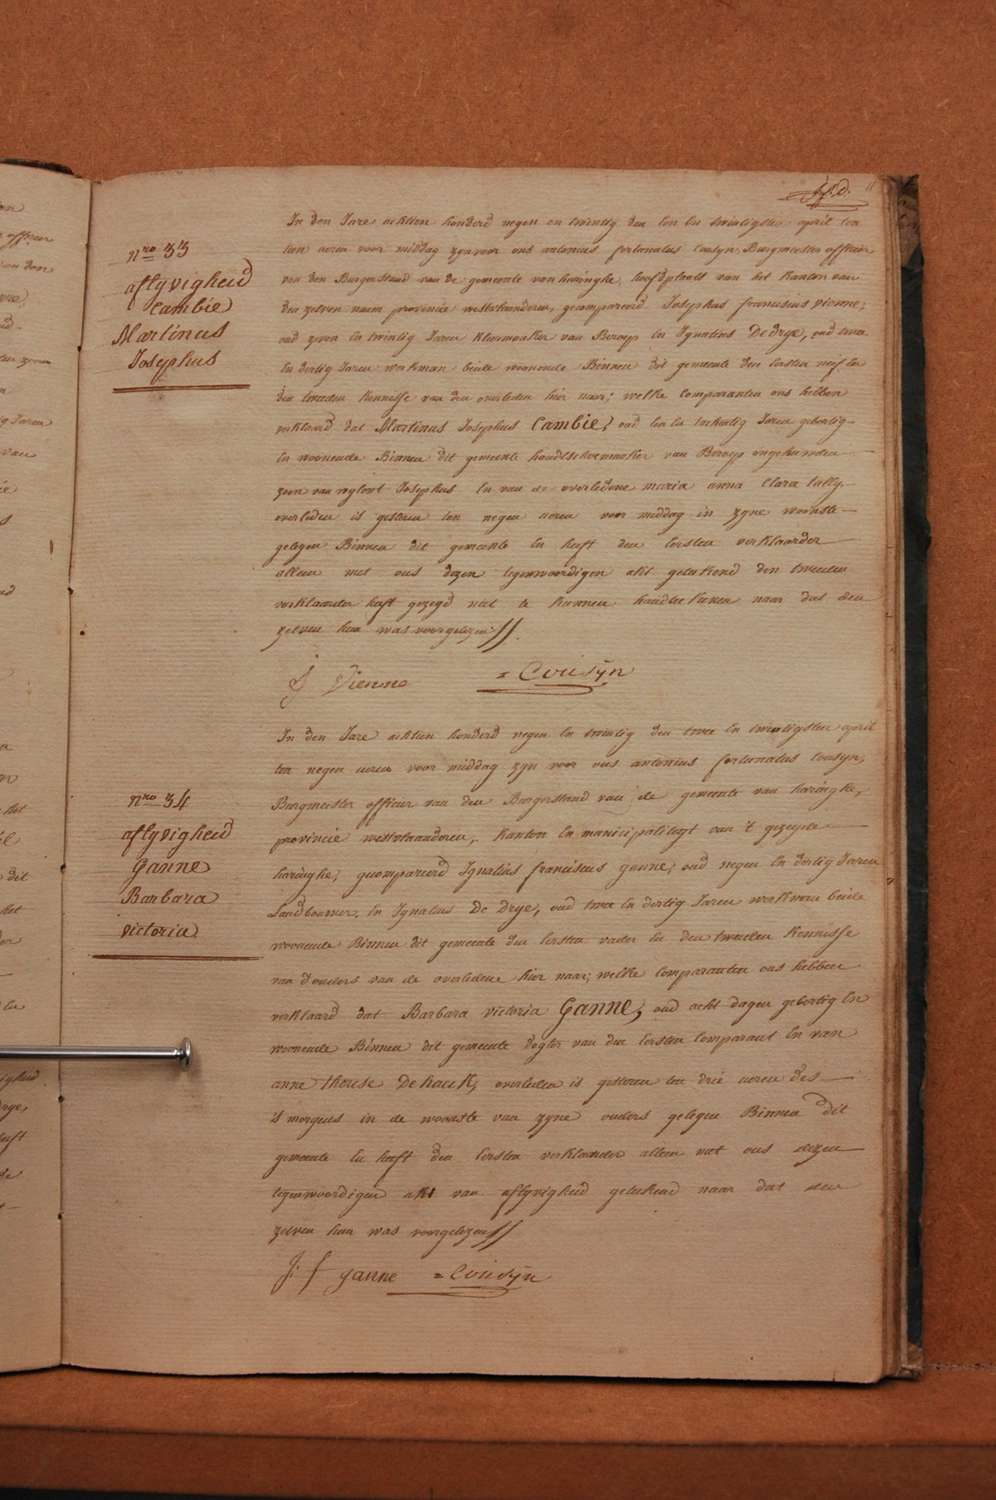 11
nro 33
aflyvigheid
Cambie
Martinus
Josephus
In den Jare achtien honderd negen en twintig den een en twintigste april ten
tien ueren voor middag zyn voor ons antonius fortunatus Cousyn, Burgmeester officier
van den Burgerstand van de gemeente van haringhe, hoofdplaets van het kanton van
den zelven naem provincie westvlaanderen, gecompareerd Josephus franciscus vienne,
oud zeven en twintig Jaren kleermaeker van Beroep en Ignatius De Drye, oud twee
en dertig Jaren werkman beide woonende Binnen dit gemeente den eersten neef en
den tweeden kennisse van den overleden hier naer; welke comparanten ons hebben
verklaard dat Martinus Josephus Cambie, oud en tachtig Jaren geboortig
en woonende Binnen dit gemeente handschoenmaker van Beroep ongehuwden
zoon van wylent Josephus en van de overledene maria anna Clara
overleden is gisteren ten negen ueren voor middag in zyne woonste
gelegen Binnen dit gemeente en heeft den eersten verklaarder
alleen met ons dezen tegenwoordigen akt geteekend den tweeden
verklaarder heeft gezegd niet te kunnen handteekenen naer dat den
zelven hun was voorgelezen //
J Vienne = Cousyn
nro 34
aflyvigheid
Ganne
Barbara
victoria
In den Jare achtien honderd negen en twintig den twee en twintigsten april
ten negen ueren voor middag zyn voor ons antonius fortunatus cousyn,
Burgmeester officier van den Burgerstand van de gemeente van haringhe,
provincie westvlaanderen, kanton en municipaliteyt van 't gezeyde
haringhe, gecompareerd Ignatius franciscus ganne, oud negen en dertig Jaren
Landbouwer, en Ignatius De Drye, oud twee en dertig Jaren werkman beide
woonende Binnen dit gemeente den eersten vader en den tweeden kennisse
van d'ouders van de overledene hier naer; welke comparanten ons hebben
verklaard dat Barbara victoria Ganne, oud acht dagen geboortig en
woonende Binnen dit gemeente dogter van den eersten comparant en van
anne therese Dehaeck, overleden is gisteren ten drie ueren des
is morgens in de woonste van zyne ouders gelegen Binnen dit
gemeente en heeft den eersten verklaarder alleen met ons dezen
tegenwoordigen akt van aflyvigheid geteekend naer dat den
zelven hun was voorgelezen //
J: f ganne = Cousyn